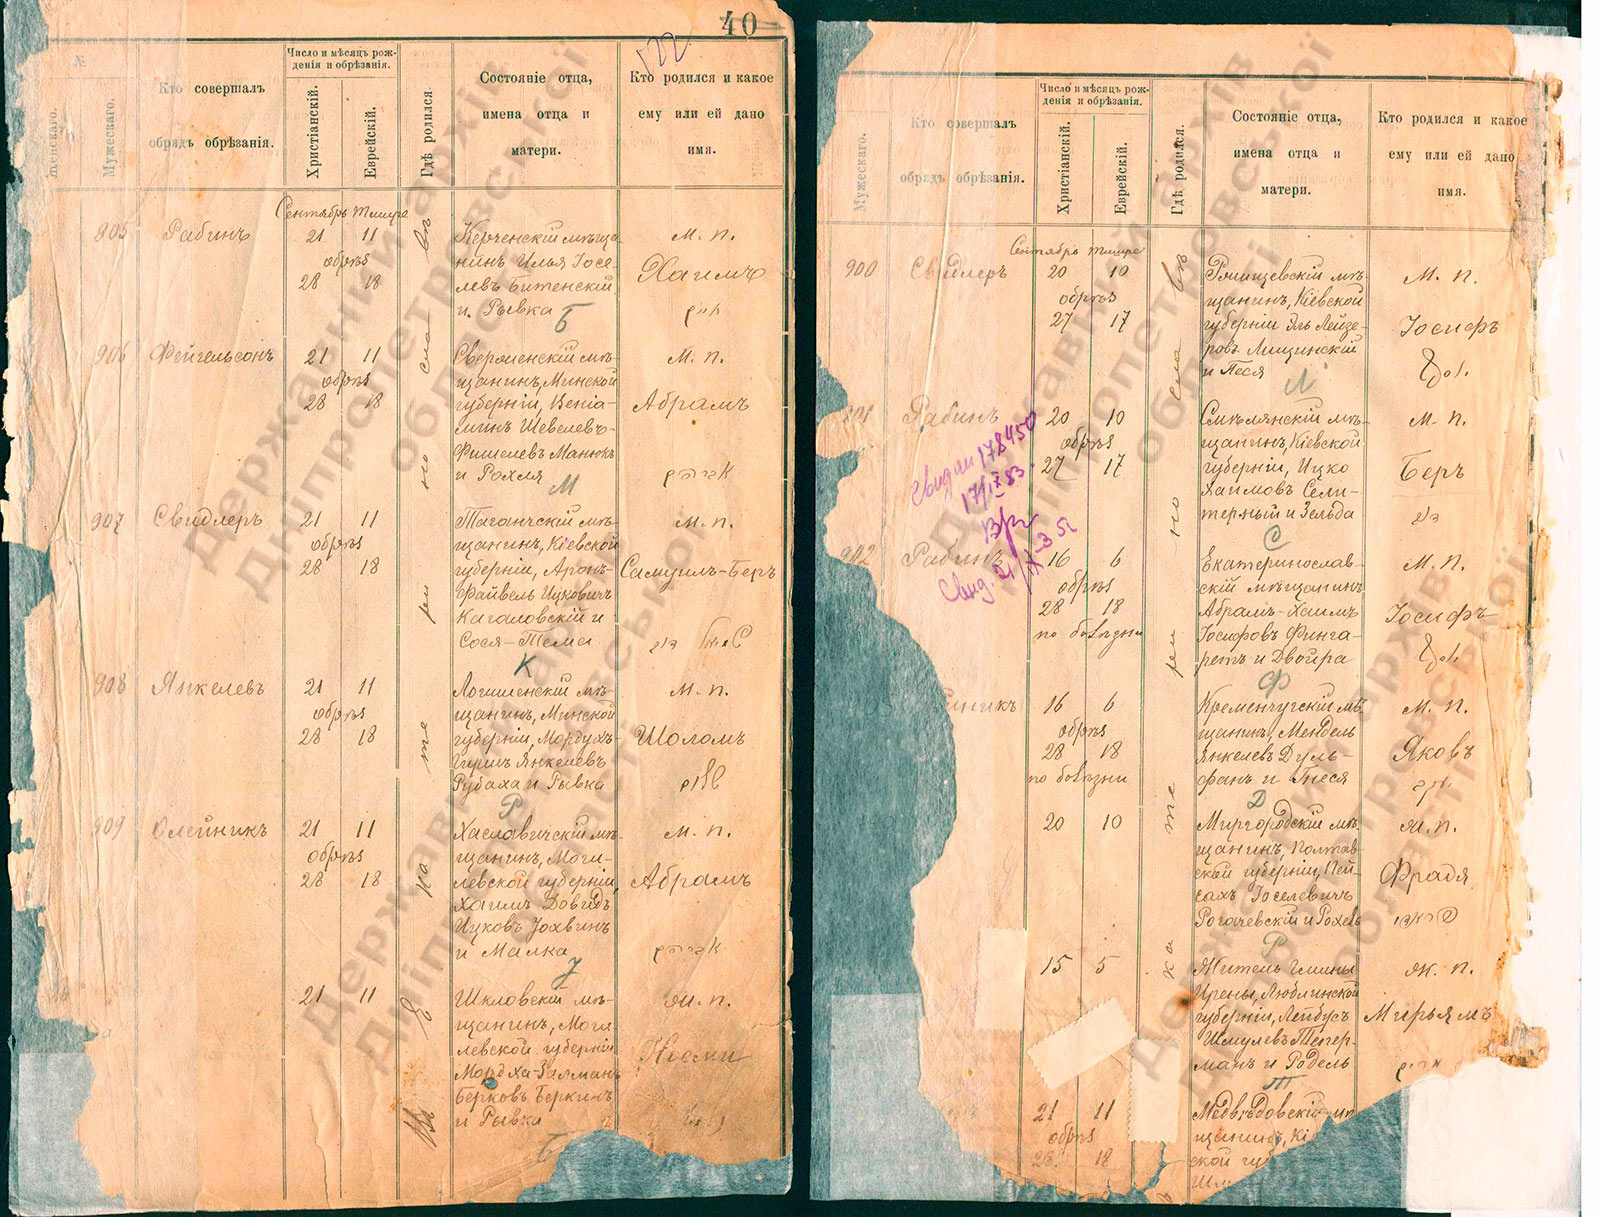 40
122
№
Женскаго.
Мужескаго.
Кто совершалъ
обрядъ обрѣзанія.
Число и мѣсяцъ рож-
денія и обрѣзанія.
Христіанскій.
Еврейскій.
Гдѣ родился
Состояніе отца,
имена отца и
матери.
Кто родился и какое
ему или ей дано
имя.
Сентябрь Тишре
905 Рабинъ 21 11
обрѣз
28 18
Керченскій мѣща-
нинъ Илья Іосе-
левъ Битенскій
и Рывка
Б
м. п.
Хаимъ
חיים
906 Фейгельсонъ 21 11
обрѣз
28 18
Сверженскій мѣ-
щанинъ, Минской
губерніи, Веніа-
минъ Шевелевъ-
Фишелевъ Манюкъ
и Рохля
М
м. п.
Абрамъ
אברהם
907 Свидлеръ 21 11
обрѣз
28 18
Таганчскій мѣ-
щанинъ, Кіевской
губерніи, Аронъ-
Файвель Ицковичъ
Кагаловскій и
Сося-Тема
К
м. п.
Самуилъ-Беръ
שמואל בער
908 Янкелевъ 21 11
обрѣз
28 18
Логишенскій мѣ-
щанинъ, Минской
губерніи, Мордухъ-
Гиршъ Янкелевъ
Рубаха и Рывка
Р
м. п.
Шоломъ
שלום
909 Олейникъ 21 11
обрѣз
28 18
Хаславичскій мѣ-
щанинъ, Моги-
левской губерніи,
Хаимъ Довидъ
Ицковъ Іохвинъ
и Малка
м. п.
Абрамъ
אברהם
21 11
Шкловскій мѣ-
щанинъ, Моги-
левской губерніи
Мордха-Залманъ
Берковъ Беркинъ
и Рывка
Б
ж. п.
Ноеми
Мужескаго.
Кто совершалъ
обрядъ обрѣзанія.
Число и мѣсяцъ рож-
денія и обрѣзанія.
Христіанскій.
Еврейскій.
Гдѣ родился.
Состояніе отца,
имена отца и
матери.
Кто родился и какое
ему или ей дано
имя.
Сентябрь Тишре
900 Свидлеръ 20 10
обрѣз
27 17
Ржищевскій мѣ-
щанинъ, Кіевской
губерніи Эль Лейзе-
ровъ Лищинскій
и Песя
Л
м. п.
Іосифъ
יוסף
901 Рабинъ 20 10
обрѣз
27 17
Смѣлянскій мѣ-
щанинъ, Кіевской
губерніи, Ицко
Хаимовъ Сели-
терный и Зельда
С
м. п.
Беръ
בער
902 Рабинъ 16 6
обрѣз
28 18
по болѣзни
Екатеринослав-
скій мѣщанинъ
Абрамъ-Хаимъ
Іосифовъ Финга-
ретъ и Двойра
Ф
м. п.
Іосифъ
יוסף
никъ 16 6
обрѣз
28 18
по болѣзни
Кременчугскій мѣ-
щанинъ, Мендель
Янкелевъ Дуль-
фанъ и Гнеся
Д
м. п.
Яковъ
יעקב
20 10
Миргородскій мѣ-
щанинъ, Полтав-
ской губерніи, Пей-
сахъ Іоселевичъ
Рогачевскій и Рохель
Р
ж. п.
Фрадя
פראדיא
15 5
Житель гмины
Ирены, Люблинской
губерніи, Лейбусъ
Шмулевъ Тепер-
манъ и Родель
Т
ж. п.
Мирьямъ
מרים
21 11
обрѣз
28 18
Медвѣдовскій мѣ
щанинъ, Кі
ской губ
Державний архів
Дніпропетровської
області